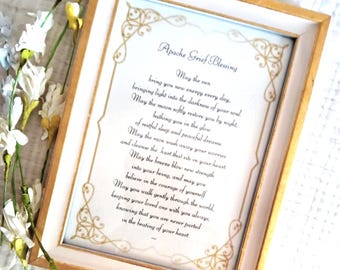 Apache Grief Blessing
May the sun
bring you new energy every day,
bringing light into the darkness of your soul.
May the moon softly restore you by night,
bathing you in the glow
of restful sleep and peaceful dreams
May the rain wash away your worries
and cleanse the hurt that sits in your heart
May the breeze blow new strength
into your being, and may you
believe in the courage of yourself
May you walk gently through the world,
keeping your loved one with you always,
knowing that you are never parted
in the beating of your heart.